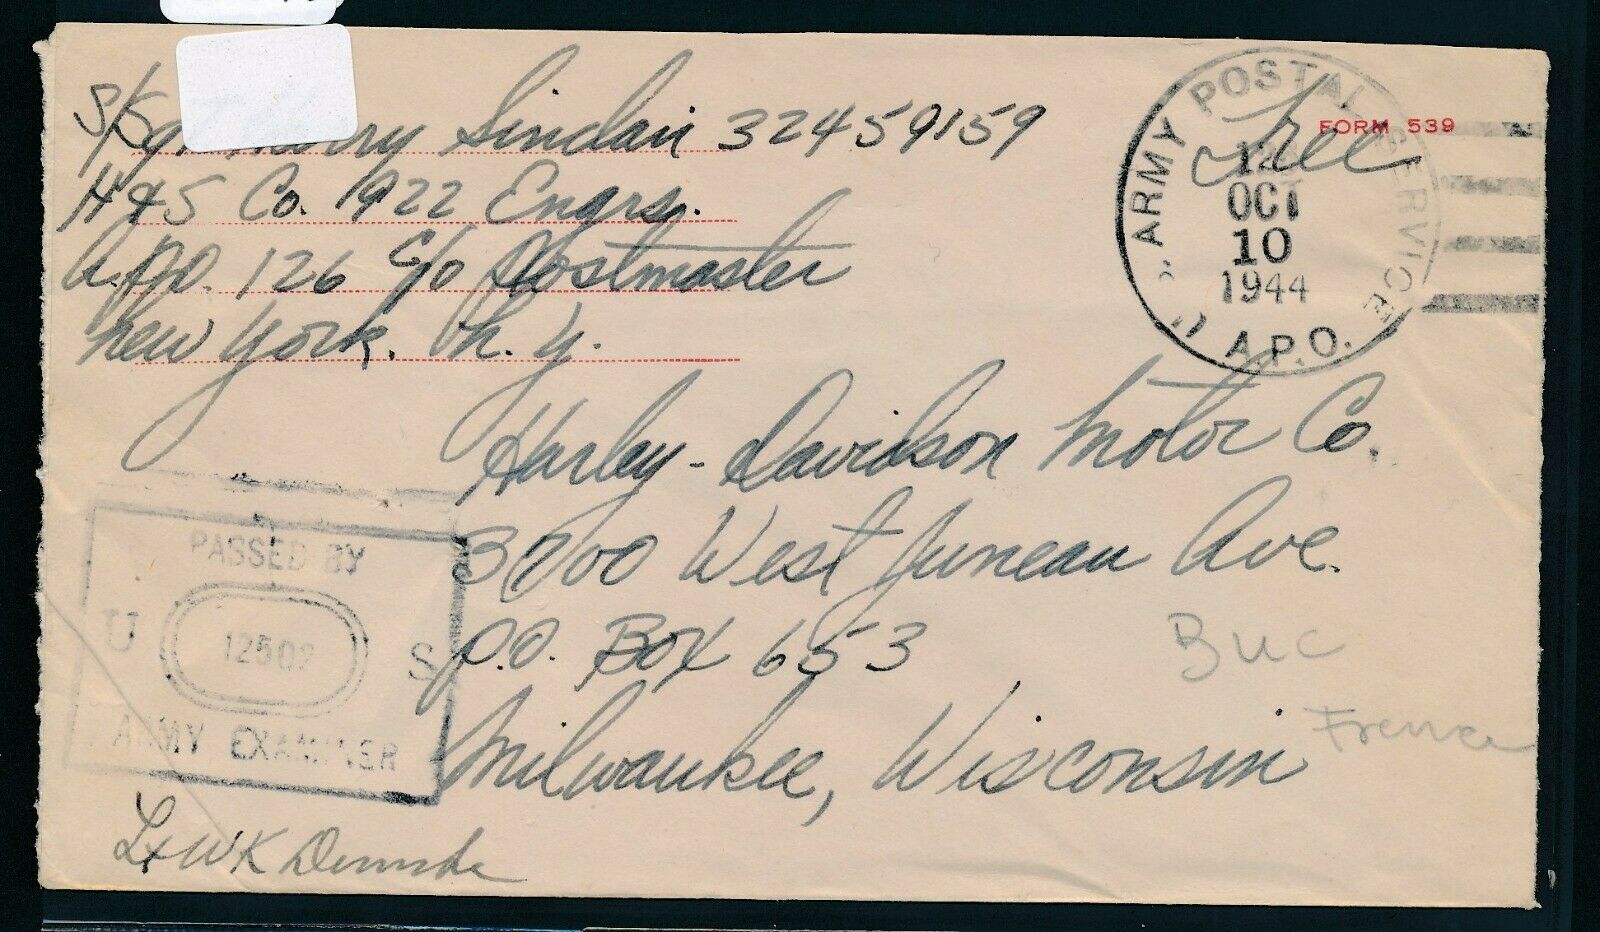 S/Sgt. Harry Sinclair 32459159
H & S Co. 1922 Engrs.
A.P.O. 126 c/o Postmaster
New York, N.Y.
Free
FORM 539
ARMY POSTAL SERVICE
12
OCT
10
1944
A.P.O.
Harley-Davidson Motor Co.
3700 West Juneau Ave.
P.O. Box 653
Milwaukee, Wisconsin
Buc
France
PASSED BY
U 12502 S
ARMY EXAMINER
Lt WK